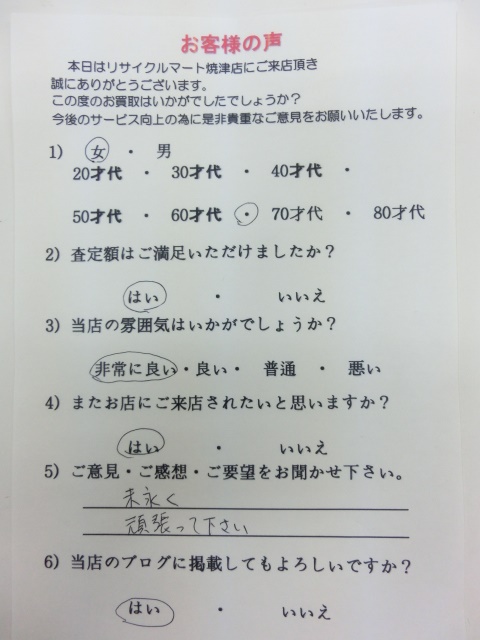 お客様の声
本日はリサイクルマート焼津店にご来店頂き
誠にありがとうございます。
この度のお買取はいかがでしたでしょうか？
今後のサービス向上の為に是非貴重なご意見をお願いいたします。
1） 女 ・ 男
20才代 ・ 30才代 ・ 40才代 ・
50才代 ・ 60才代 ・ 70才代 ・ 80才代
2）査定額はご満足いただけましたか？
はい ・ いいえ
3）当店の雰囲気はいかがでしょうか？
非常に良い・良い・ 普通 ・ 悪い
4）またお店にご来店されたいと思いますか？
はい ・ いいえ
5）ご意見・ご感想・ご要望をお聞かせ下さい。
末永く
頑張って下さい
6）当店のブログに掲載してもよろしいですか？
はい ・ いいえ